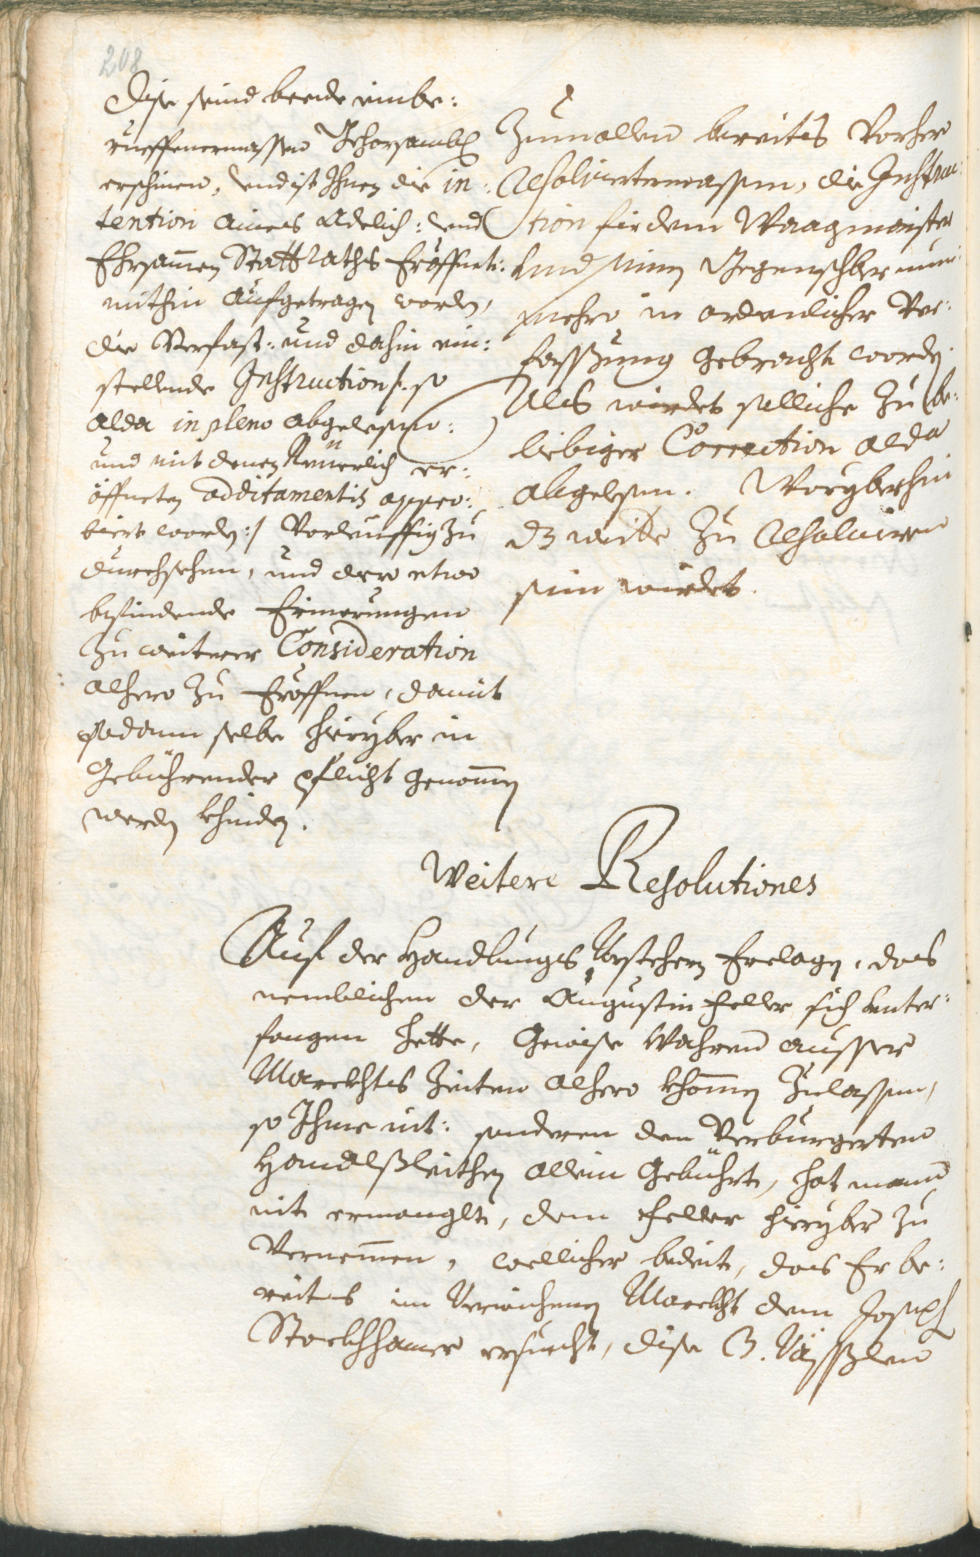 208
Dise seind beede einbe:
rueffenermassen Gehorsambl:
erschinen, und ist Ihnen die in:
tention aines Adelich: und
Ehrsamen StattRaths Eröffnet:
mithin aufgetragen worden,
die Verfast: und dahin ein:
stellende Instruction /: so
alda in pleno abgelesen:
und mit denen Neuerlich er:
öffneten additamentis appro:
biert worden :/ Vorleuffig zu
durchsehen, und dero etwo
befindende Erinnerungen
zu weiterer Consideration
alhero zu Eröffnen, damit
sodann selbe hieryber in
Gebührender pflicht genommen
werden khinden.
Zumallen bereites Vorher
Resolviertermassen, die Instruc:
tion fir den Waagmaister
und seinen Gegenschber nun:
mehro in ordenlicher Ver:
fassßung gebracht worden.
Als wirdet selliche zu be:
liebiger Correction alda
abgelesen. Woryberhin
dz weitte zu Resolviren
sein wirdet.
Weitere Resolutiones
Auf der Handlungs Vorstehern Erclagen, das
nemblichen der Augustin Feller sich unter:
fangen hette, Gewise Wahren ausser
Marckhts Zeiten alhero khommen zulassen,
so Ihme nit: sonderen den Verburgerten
Handlßleithen allein Gebührte, hat mann
nit ermanglt, dem Feller hieryber zu
Vernemmen, wellicher bedeit, das Er be:
reits im Verwichenen Marckht dem Joseph
Stockhhamer ersuecht, dise 3. Väsßlen